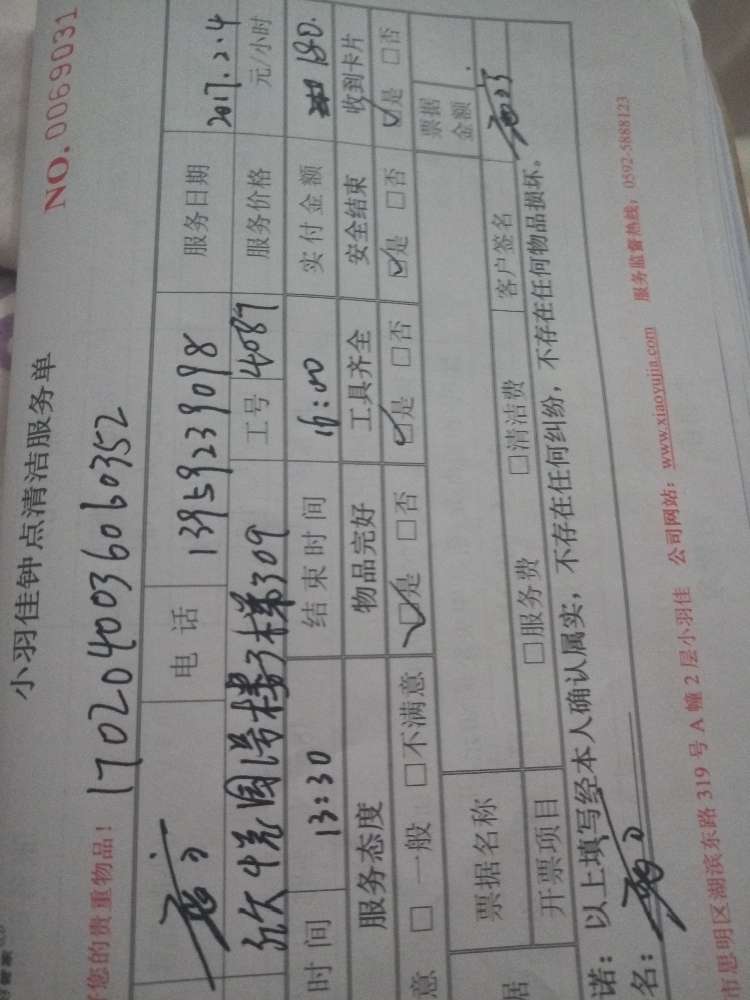 小羽佳钟点清洁服务单
NO.0069031
您的贵重物品！ 1702040036060352
电话 13959239098 服务日期 2017.2.4
欣悦园 楼3梯309 工号 4087 服务价格 元/小时
时间 13:30 结束时间 16:00 实付金额 180.
服务态度 物品完好 工具齐全 安全结束 收到卡片
意 □ 一般 □不满意 ☑是 □否 ☑是 □否 ☑是 □否 ☑是 □否
票据名称 票据金额
开票项目 □服务费 □清洁费 客户签名
诺：以上填写经本人确认属实，不存在任何纠纷，不存在任何物品损坏。
名：
市思明区湖滨东路 319 号 A 幢 2 层小羽佳 公司网站：www.xiaoyujia.com 服务监督热线：0592-5888123